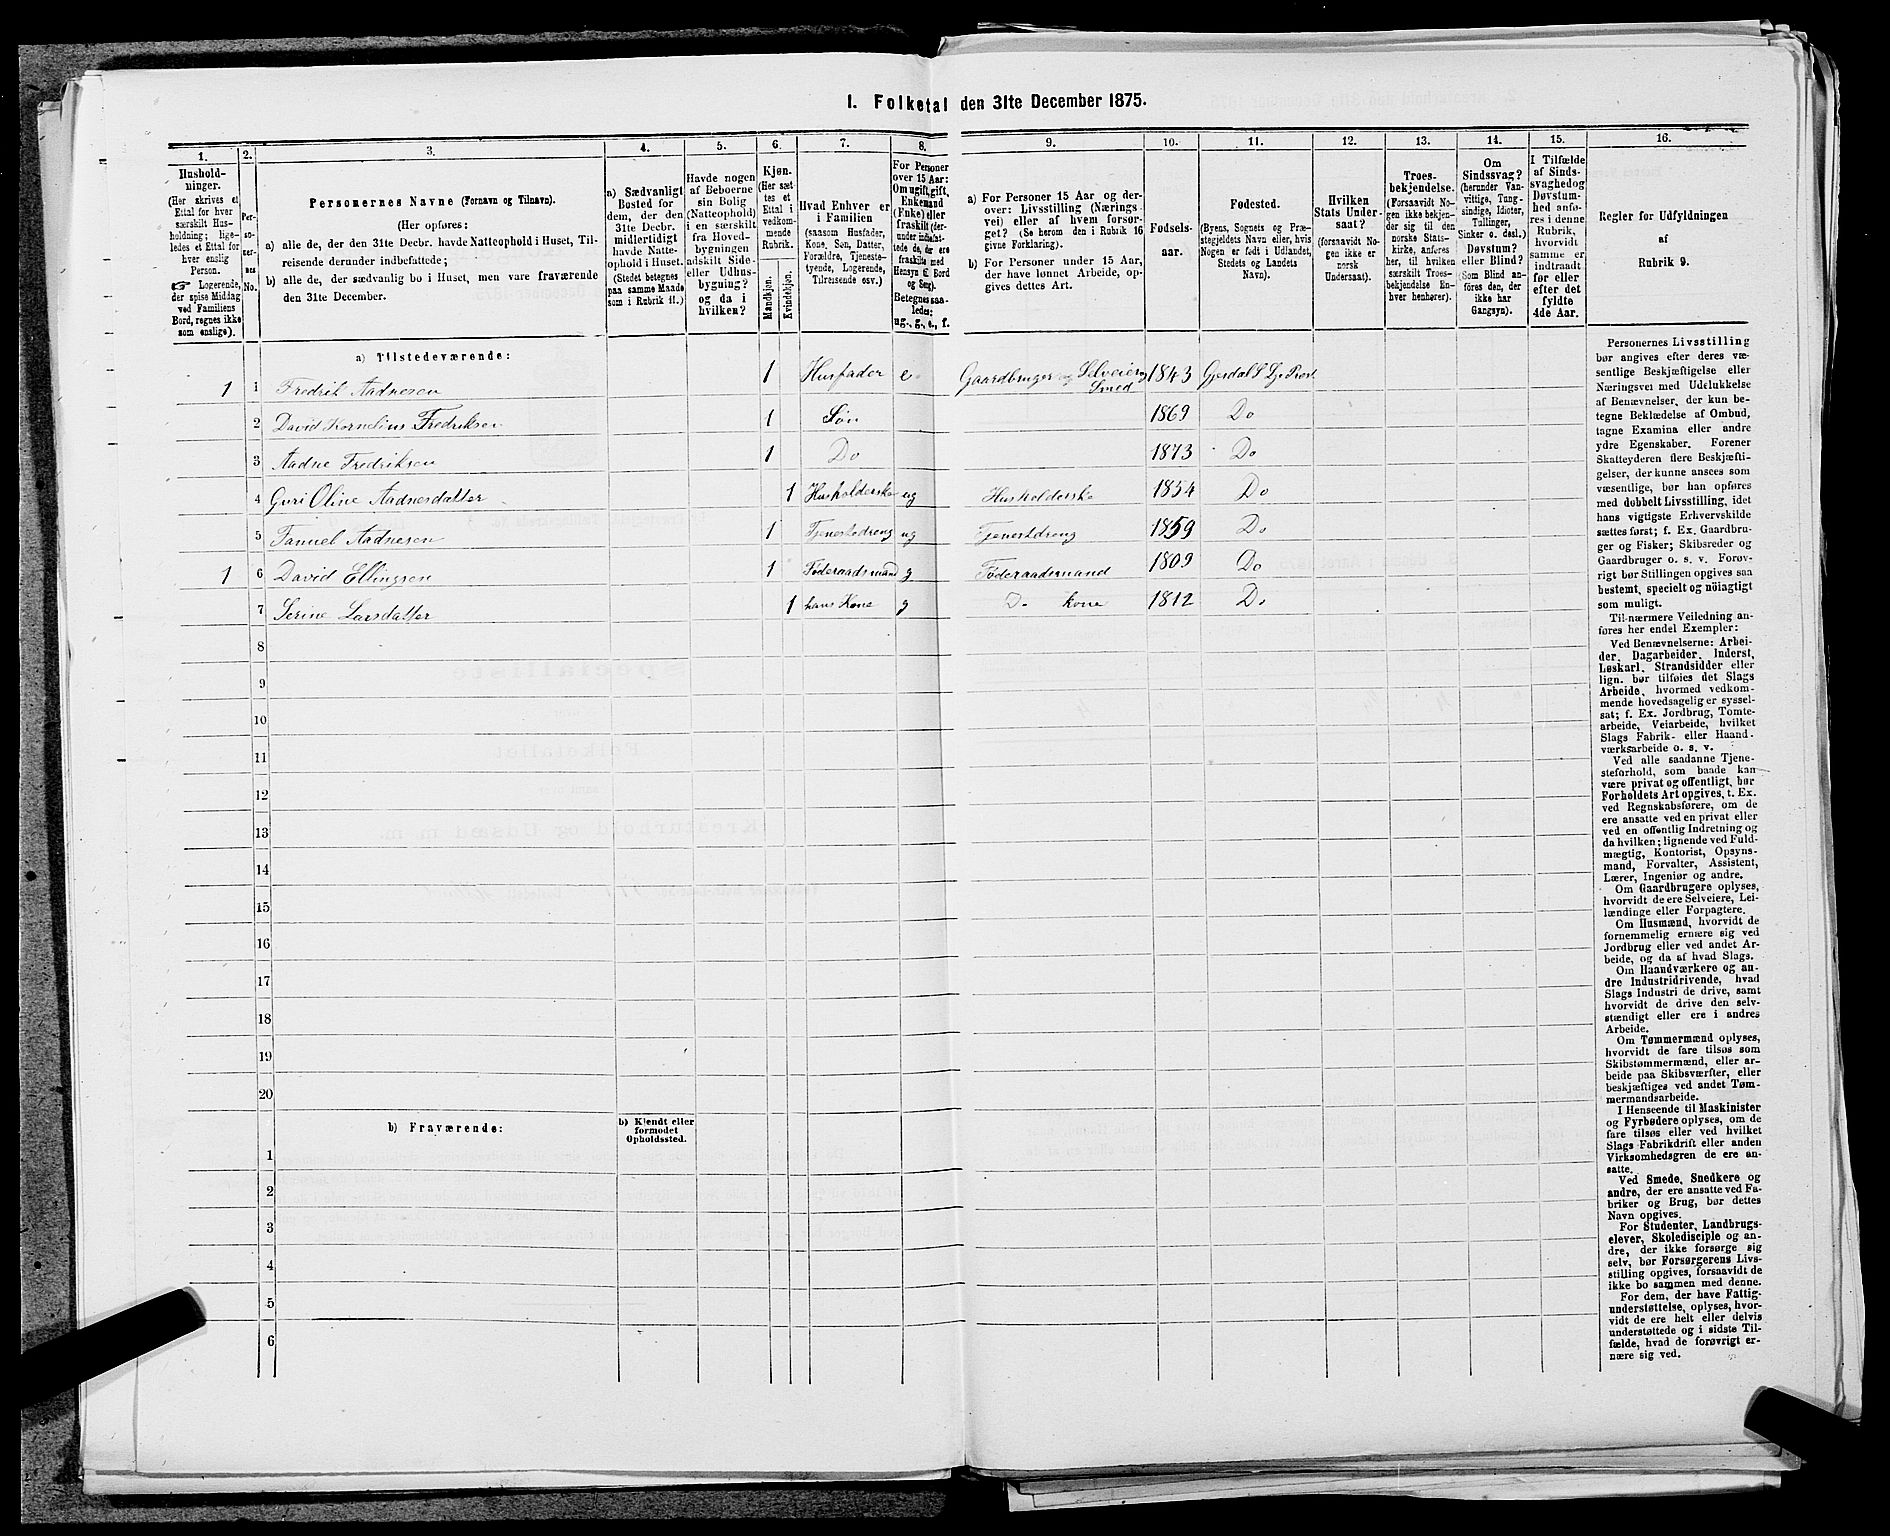 I. Folketal den 31te December 1875.
1. 2. 3. 4. 5. 6. 7. 8. 9. 10. 11. 12. 13. 14. 15. 16.
Hushold-
ninger.
(Her skrives et
Ettal for hver
særskilt Hus-
holdning; lige-
ledes et Ettal for
hver enslig
Person.
☞ Logerende,
der spise Middag
ved Familiens
Bord, regnes ikke
som enslige).
Per-
so-
ner-
nes
No.
Personernes Navne (Fornavn og Tilnavn).
(Her opføres:
a) alle de, der den 31te Decbr. havde Natteophold i Huset, Til-
reisende derunder indbefattede;
b) alle de, der sædvanlig bo i Huset, men vare fraværende
den 31te December.
a) Sædvanligt
Bosted for
dem, der den
31te Decbr.
midlertidigt
havde Natte-
ophold i Huset.
(Stedet betegnes
paa samme Maade
som i Rubrik 11.)
Havde nogen
af Beboerne
sin Bolig
(Natteophold)
i en særskilt
fra Hoved-
bygningen
adskilt Side-
eller Udhus-
bygning?
og da i
hvilken?
Kjøn.
(Her sæt-
tes et
Ettal i
vedkom-
mende
Rubrik.
Mandkjøn.
Kvindekjøn.
Hvad Enhver er
i Familien
(saasom Husfader,
Kone, Søn, Datter,
Forældre, Tjeneste-
tyende, Logerende,
Tilreisende osv.)
For Personer
over 15 Aar:
Om ugift, gift,
Enkemand
(Enke) eller
fraskilt (der-
under indbefat-
tede de, der ere
fraskilt med
Hensyn t. Bord
og Seng).
Betegnes saa-
ledes:
ug., g., e., f.
a) For Personer 15 Aar og der-
over: Livsstilling (Nærings-
vei) eller af hvem forsør-
get? (Se herom den i Rubrik 16
givne Forklaring).
b) For Personer under 15 Aar,
der have lønnet Arbeide, op-
gives dettes Art.
Fødsels-
aar.
Fødested.
(Byens, Sognets og Præ-
stegjeldets Navn eller, hvis
Nogen er født i Udlandet,
Stedets og Landets
Navn).
Hvilken
Stats Under-
saat?
(forsaavidt No-
gen ikke er
norsk
Undersaat).
Troes-
bekjendelse.
(Forsaavidt No-
gen ikke bekjen-
der sig til den
norske Stats-
kirke, anføres
her, til hvilken
særskilt Troes-
bekjendelse En-
hver henhører).
Om
Sindssvag?
(herunder Van-
vittige, Tung-
sindige, Idioter,
Tullinger,
Sinker o. desl.)
Døvstum?
eller Blind?
(Som Blind an-
føres den, der
ikke har
Gangsyn).
I Tilfælde
af Sinds-
svaghed og
Døvstum-
hed anfø-
res i denne
Rubrik,
hvorvidt
samme er
indtraadt
før eller
efter det
fyldte
4de Aar.
Regler for Udfyldningen
af
Rubrik 9.
a) Tilstedeværende:
1 1 Fredrik Aadnesen 1 Husfader e. Gaardbruger og Selveier og Smed 1843 Gjesdal S
2 David Kornelius Fredriksen 1 Søn 1869 Do
3 Aadne Fredriksen 1 Do 1873 Do
4 Guri Oline Aadnesdatter 1 Husholderske ug Husholderske 1854 Do
5 Tanuel Aadnesen 1 Tjenestedreng ug Tjenestdreng 1859 Do
1 6 David Ellingsen 1 Føderaadsmand g Føderaadsmand 1809 Do
7 Serine Larsdatter 1 hans Kone g Do kone 1812 Do
8
9
10
11
12
13
14
15
16
17
18
19
20
b) Fraværende:
b) Kjendt eller
formodet
Opholdssted.
1
2
3
4
5
6
Personernes Livsstilling
bør angives efter deres væ-
sentlige Beskjæftigelse eller
Næringsvei med Udelukkelse
af Benævnelser, der kun be-
tegne Beklædelse af Ombud,
tagne Examina eller andre
ydre Egenskaber. Forener
Skatteyderen flere Beskjæfti-
gelser, der kunne ansees som
væsentlige, bør han opføres
med dobbelt Livsstilling, idet
hans vigtigste Erhvervskilde
sættes først; f. Ex. Gaardbru-
ger og Fisker; Skibsreder og
Gaardbruger o. s. v. Forøv-
rigt bør Stillingen opgives saa
bestemt, specielt og nöiagtigt
som muligt.
Til nærmere Veiledning an-
føres her endel Exempler:
Ved Benævnelserne: Arbei-
der, Dagarbeider, Inderst,
Løskarl, Strandsidder eller
lign. bør tilføies det Slags
Arbeide, hvormed vedkom-
mende hovedsagelig er syssel-
sat; f. Ex. Jordbrug, Tomte-
arbeide, Veiarbeide, hvilket
Slags Fabrik- eller Haand-
værksarbeide o. s. v.
Ved alle saadanne Tjene-
steforhold, som baade kan
være privat og offentligt, bør
Forholdets Art opgives, t. Ex.
ved Regnskabsførere, om de
ere ansatte ved en privat eller
ved en offentlig Indretning og
da hvilken; lignende ved Fuld-
mægtig, Kontorist, Opsyns-
mand, Forvalter, Assistent,
Lærer, Ingeniør og andre.
Om Gaardbrugere oplyses,
hvorvidt de ere Selveiere, Lei-
lændinge eller Forpagtere.
Om Husmænd, hvorvidt de
fornemmelig ernære sig ved
Jordbrug eller ved andet Ar-
beide, og da af hvad Slags.
Om Haandværkere og an-
dre Industridrivende, hvad
Slags Industri de drive, samt
hvorvidt de drive den selv-
stændigt eller ere i andres
Arbeide.
Om Tømmermænd oplyses,
hvorvidt de fare tilsøs som
Skibstømmermænd, eller ar-
beide paa Skibsværfter, eller
beskjæftiges ved andet Tøm-
mermandsarbeide.
I Henseende til Maskinister
og Fyrbødere oplyses, om de
fare tilsøs eller ved hvilket
Slags Fabrikdrift eller anden
Virksomhedsgren de ere an-
satte.
Ved Smede, Snedkere og
andre, der ere ansatte ved Fa-
briker og Brug, bør dettes
Navn opgives.
For Studenter, Landbrugs-
elever, Skoledisciple og an-
dre, der ikke forsørge sig
selv, bør Forsørgerens Livs-
stilling opgives, forsaavidt de
ikke bo sammen med denne.
For dem, der have Fattig-
understøttelse, oplyses, hvor-
vidt de ere helt eller delvis
understøttede og i sidste Til-
fælde, hvad de forøvrigt er-
nære sig ved.